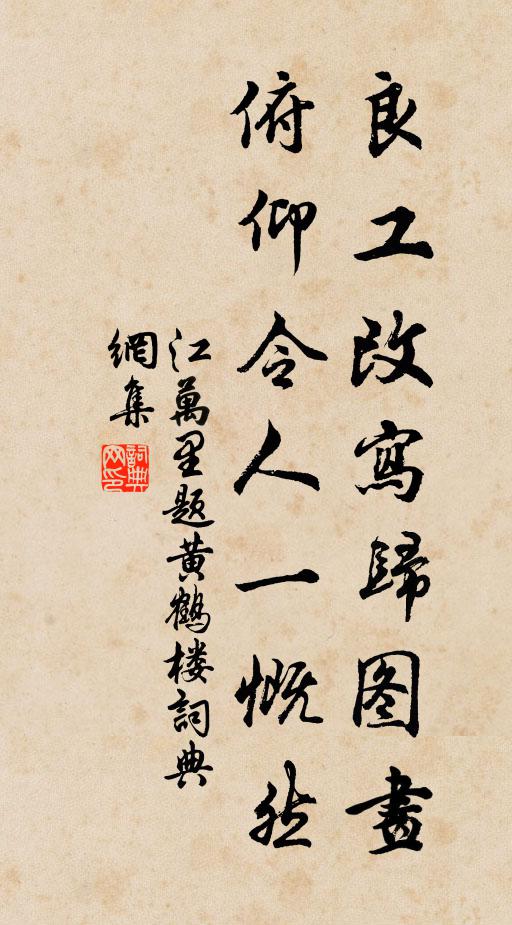 良工改寫歸图畫
俯仰令人一慨然
江萬里题黄鶴楼詞典
網集
詞典
网印